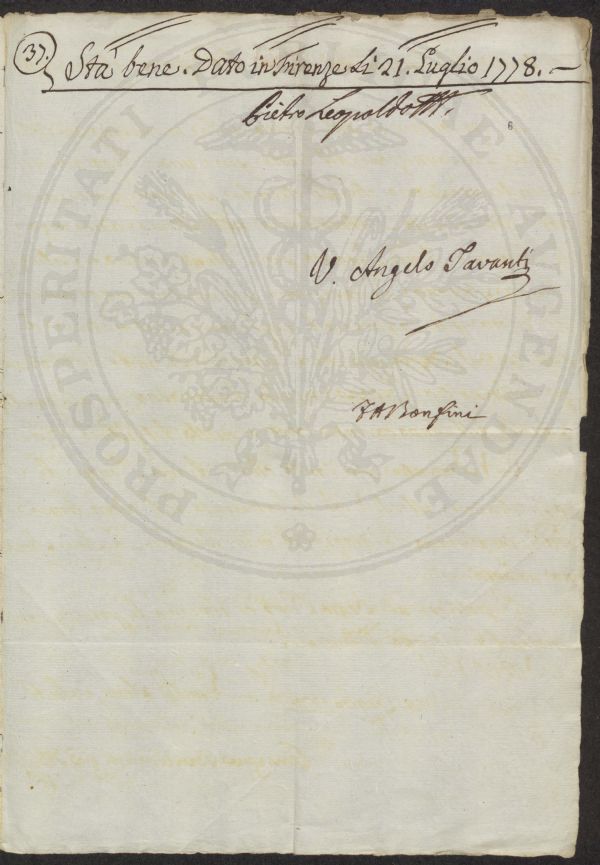 37.
Stà bene. Dato in Firenze Li 21. Luglio 1778. —
Pietro Leopoldo
6
V. Angelo Tavanti
Bonfini
PROSPERITATI AUGENDAE